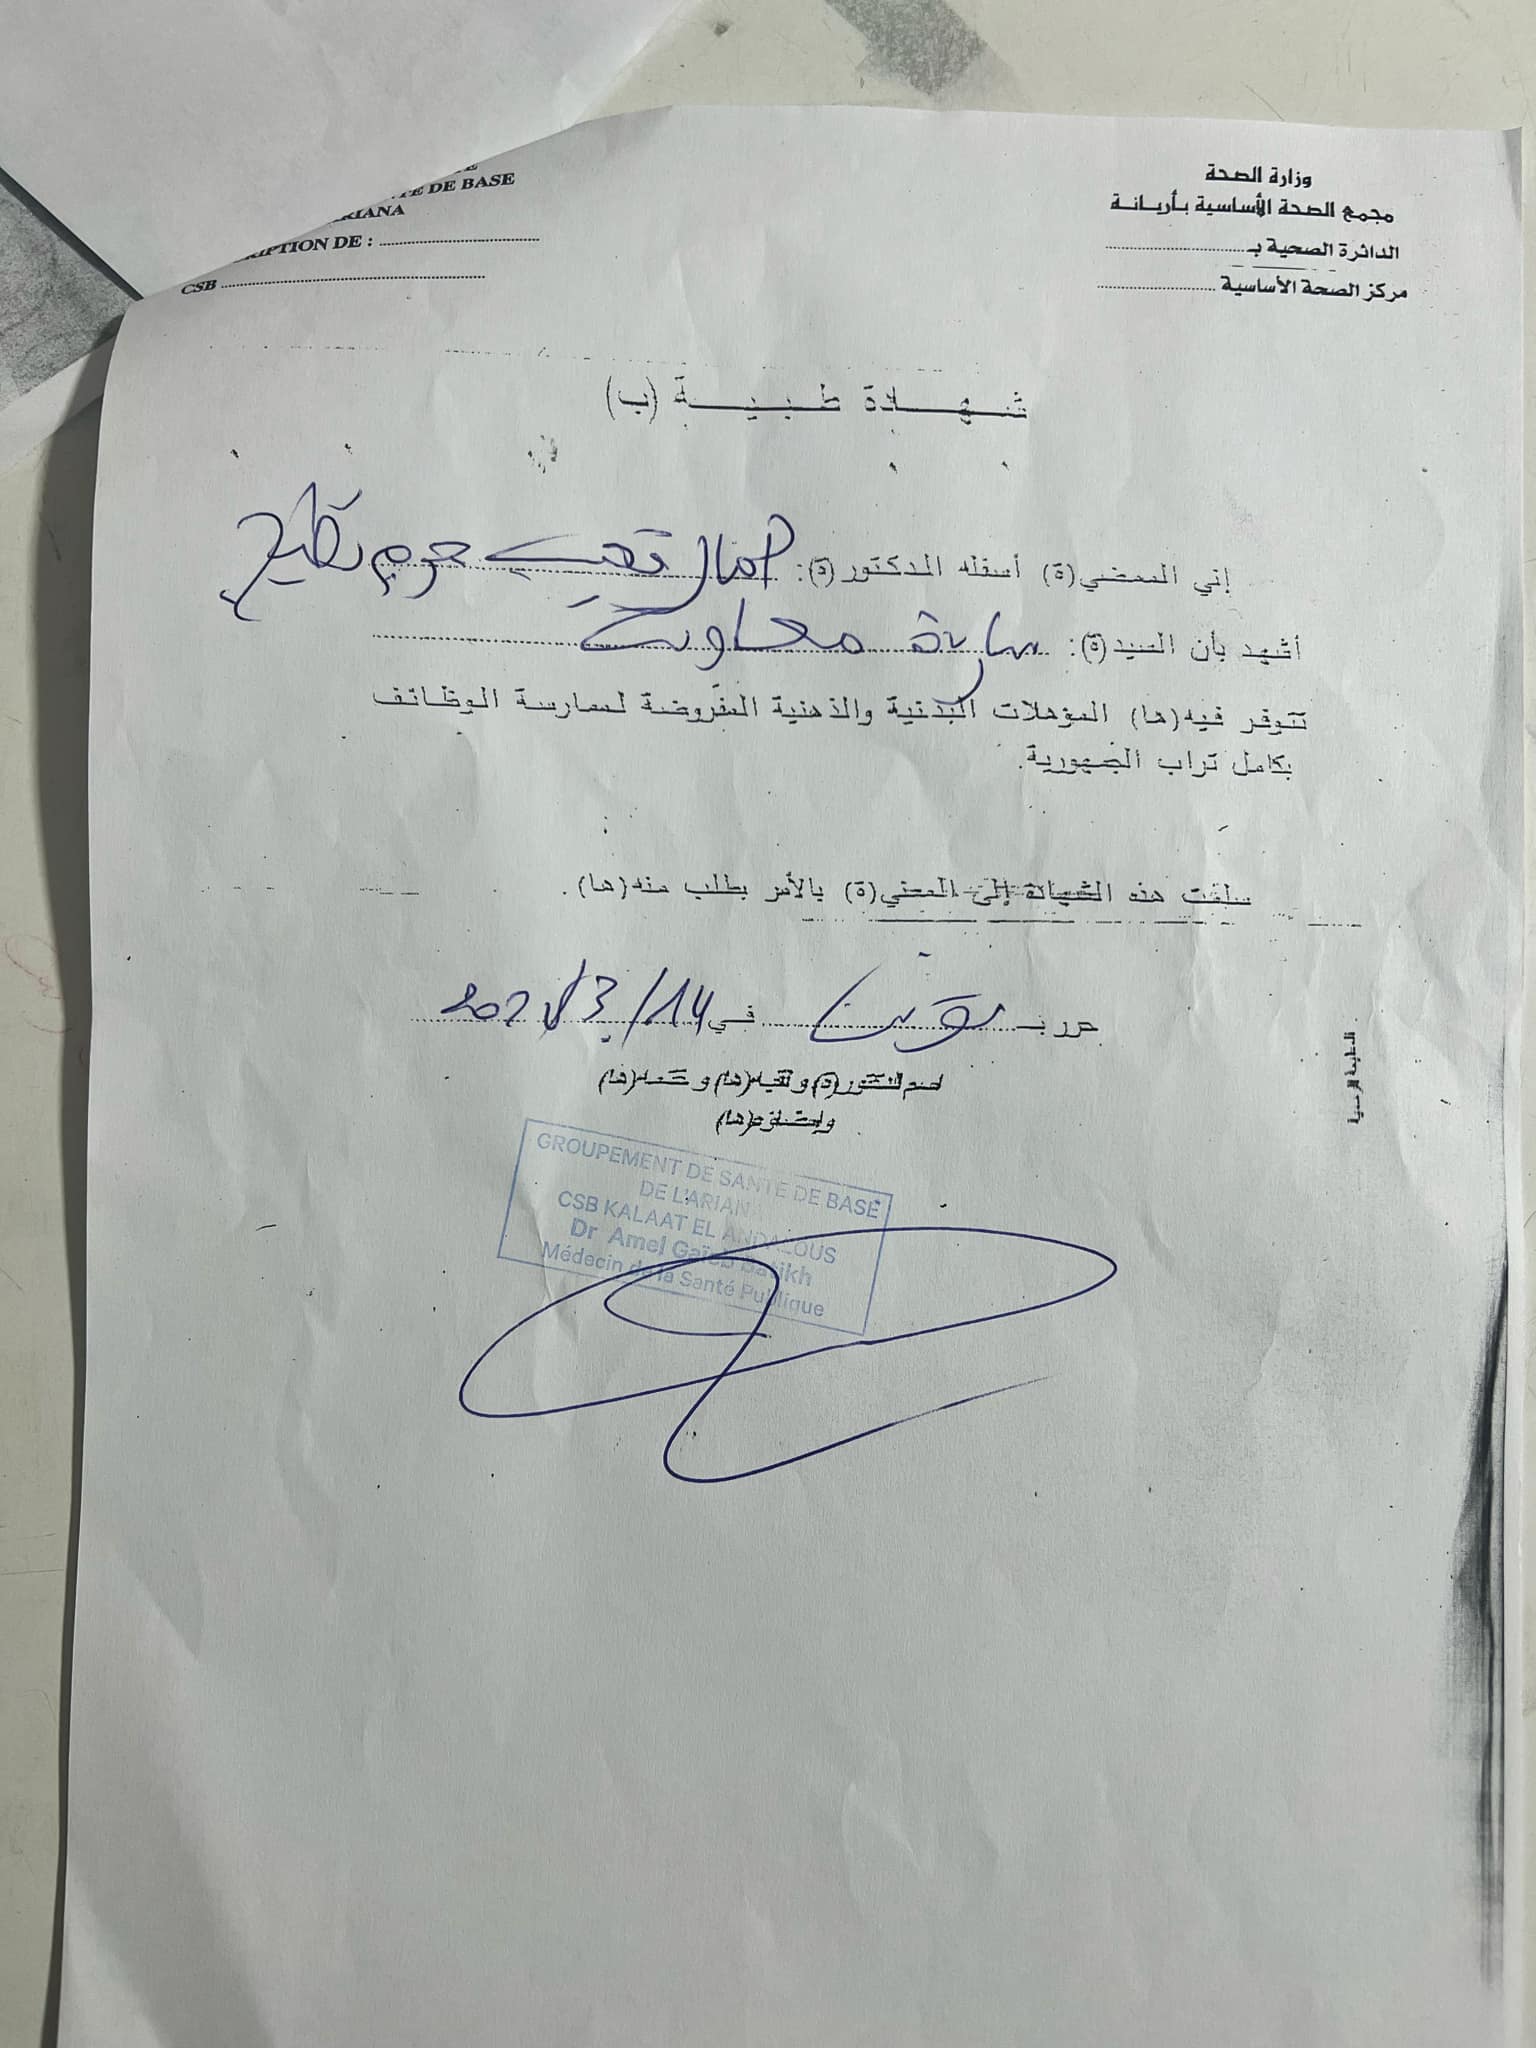 TE DE BASE
RIANA
RIPTION DE : ..............................
CSB ..............................
وزارة الصحة
مجمع الصحة الأساسية بأريانة
الدائرة الصحية بـ ..............................
مركز الصحة الأساسية ..............................
شهادة طبية (ب)
إني الممضي(ة) أسفله الدكتور(ة): امال قعيب حرم بطيخ
أشهد بأن السيد(ة): سارة معاوية
تتوفر فيه(ها) المؤهلات البدنية والذهنية المفروضة لممارسة الوظائف
بكامل تراب الجمهورية.
سلمت هذه الشهادة إلى المعني(ة) بالأمر بطلب منه(ها).
حرر بـ في 14/3/
اسم الدكتور(ة) ولقبه(ها) و (ها)
(ها)
المطبعة الرسمية
GROUPEMENT DE SANTE DE BASE
DE L'ARIANA
CSB KALAAT EL ANDALOUS
Dr Amel Gaïeb Batikh
Médecin de la Santé Publique